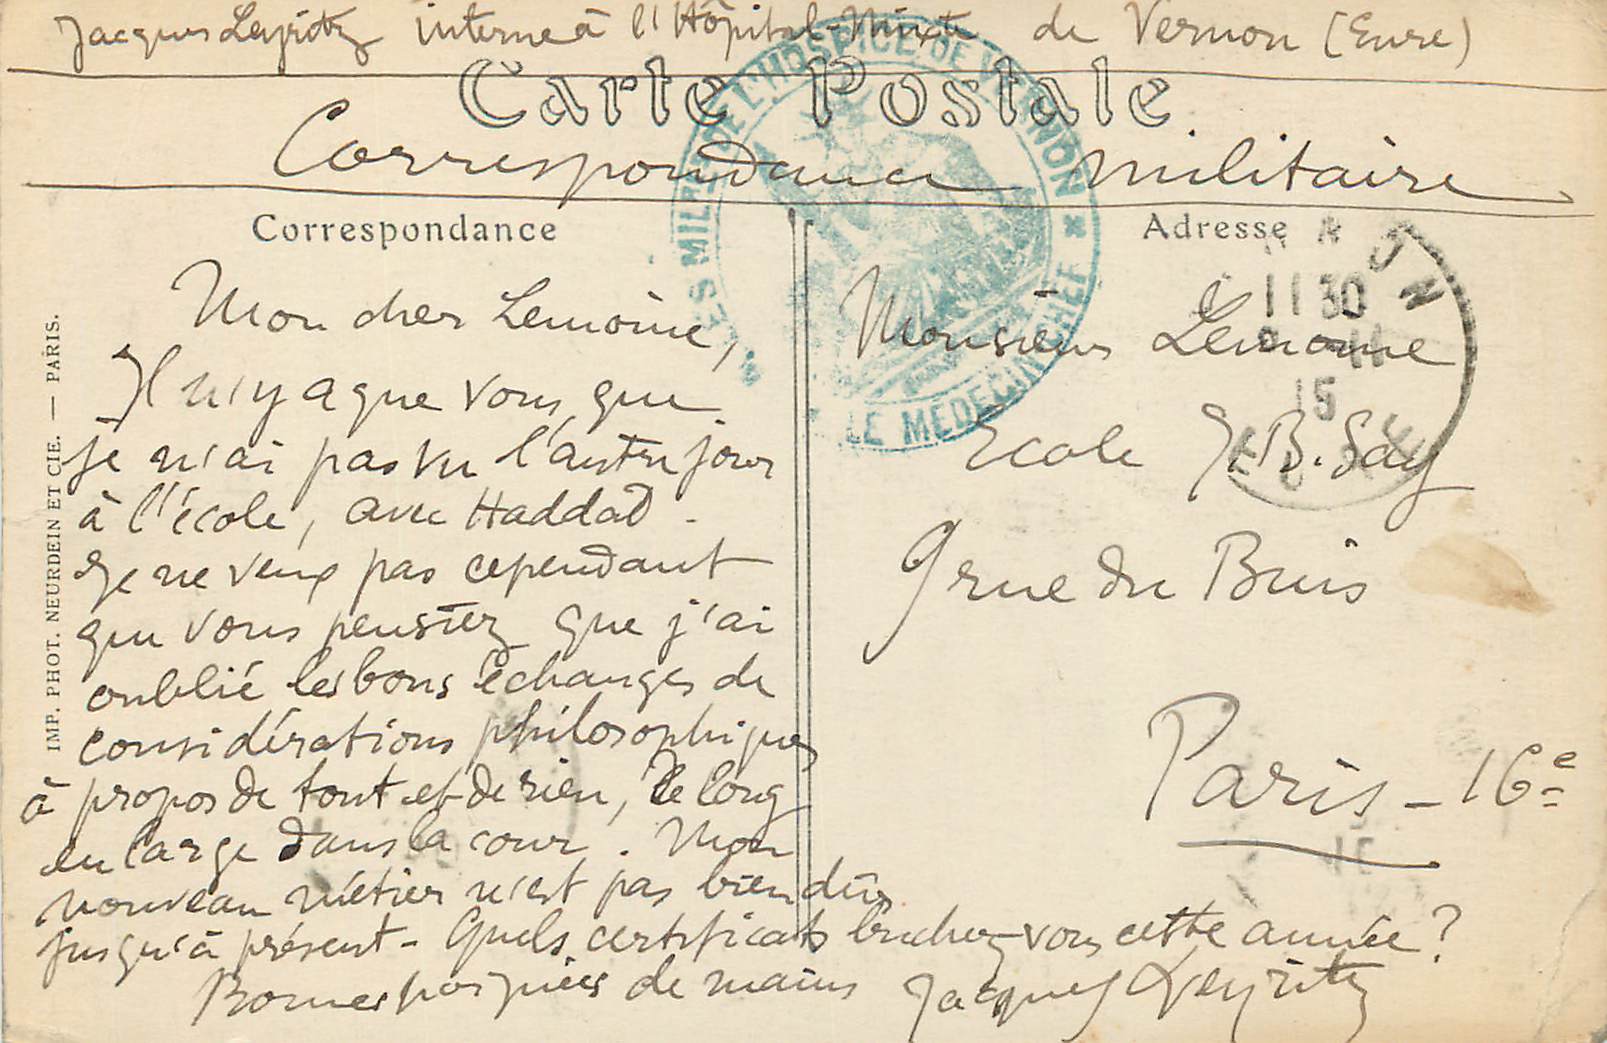 Jacques Leyritz interne à l'Hôpital-Mixte de Vernon (Eure)
Carte Postale
Correspondance militaire
Correspondance
Adresse
Mon cher Lemoine,
Il n'y a que vous, que
je n'ai pas vu l'autre jour
à l'école, avec Haddad.
Je ne veux pas cependant
que vous pensiez que j'ai
oublié les bons échanges de
considérations philosophiques
à propos de tout et de rien, de long
en large dans la cour. Mon
nouveau métier n'est pas bien dur
jusqu'à présent - Quels certificats bûchez-vous cette année ?
Bonnes poignées de mains Jacques Leyritz
Monsieur Lemoine
Ecole J.B. Say
9 rue du Buis
Paris - 16e
IMP. PHOT. NEURDEIN ET CIE. — PARIS.
DE L'HOSPICE DE VERNON * LE MÉDECIN CHEF
11 30
11
15